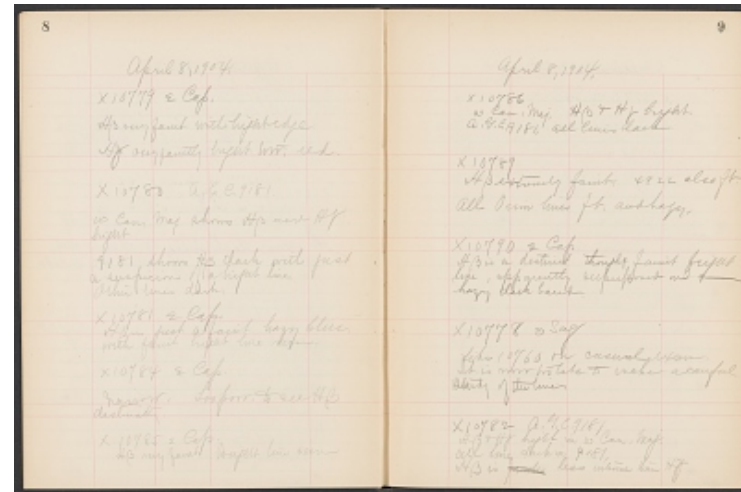 8
April 8, 1904.
X 10779 ε Cap.
Hβ very faint with bright edge
Hγ very faintly bright tow. red.
X 10780 A.G.C. 9181
ω Can. Maj. shows Hβ and Hγ
bright
9181, shows Hβ dark with just
a suspicion of a bright line
Other lines dark.
X 10781 ε Cap.
Hβ just a faint hazy blur.
with faint bright line
X 10784 ε Cap.
Narrow. Too poor to see Hβ
distinct.
X 10785 ε Cap.
Hβ very faint bright line
9
April 8, 1904.
X 10786
ω Can. Maj. Hβ & Hγ bright.
A.G.C. 9181 all lines dark
X 10789
Hβ extremely faint. 4922 also ft.
All lines ft. and hazy.
X 10790 ε Cap.
Hβ is a distinct though faint bright
line, apparently superposed on a
hazy dark band
X 10778
10760 on
it is to make a careful
study of the lines
X 10782 A.G.C. 9181
bright in ω Can. Maj.
all lines dark in 9181.
Hβ is less intense than Hγ